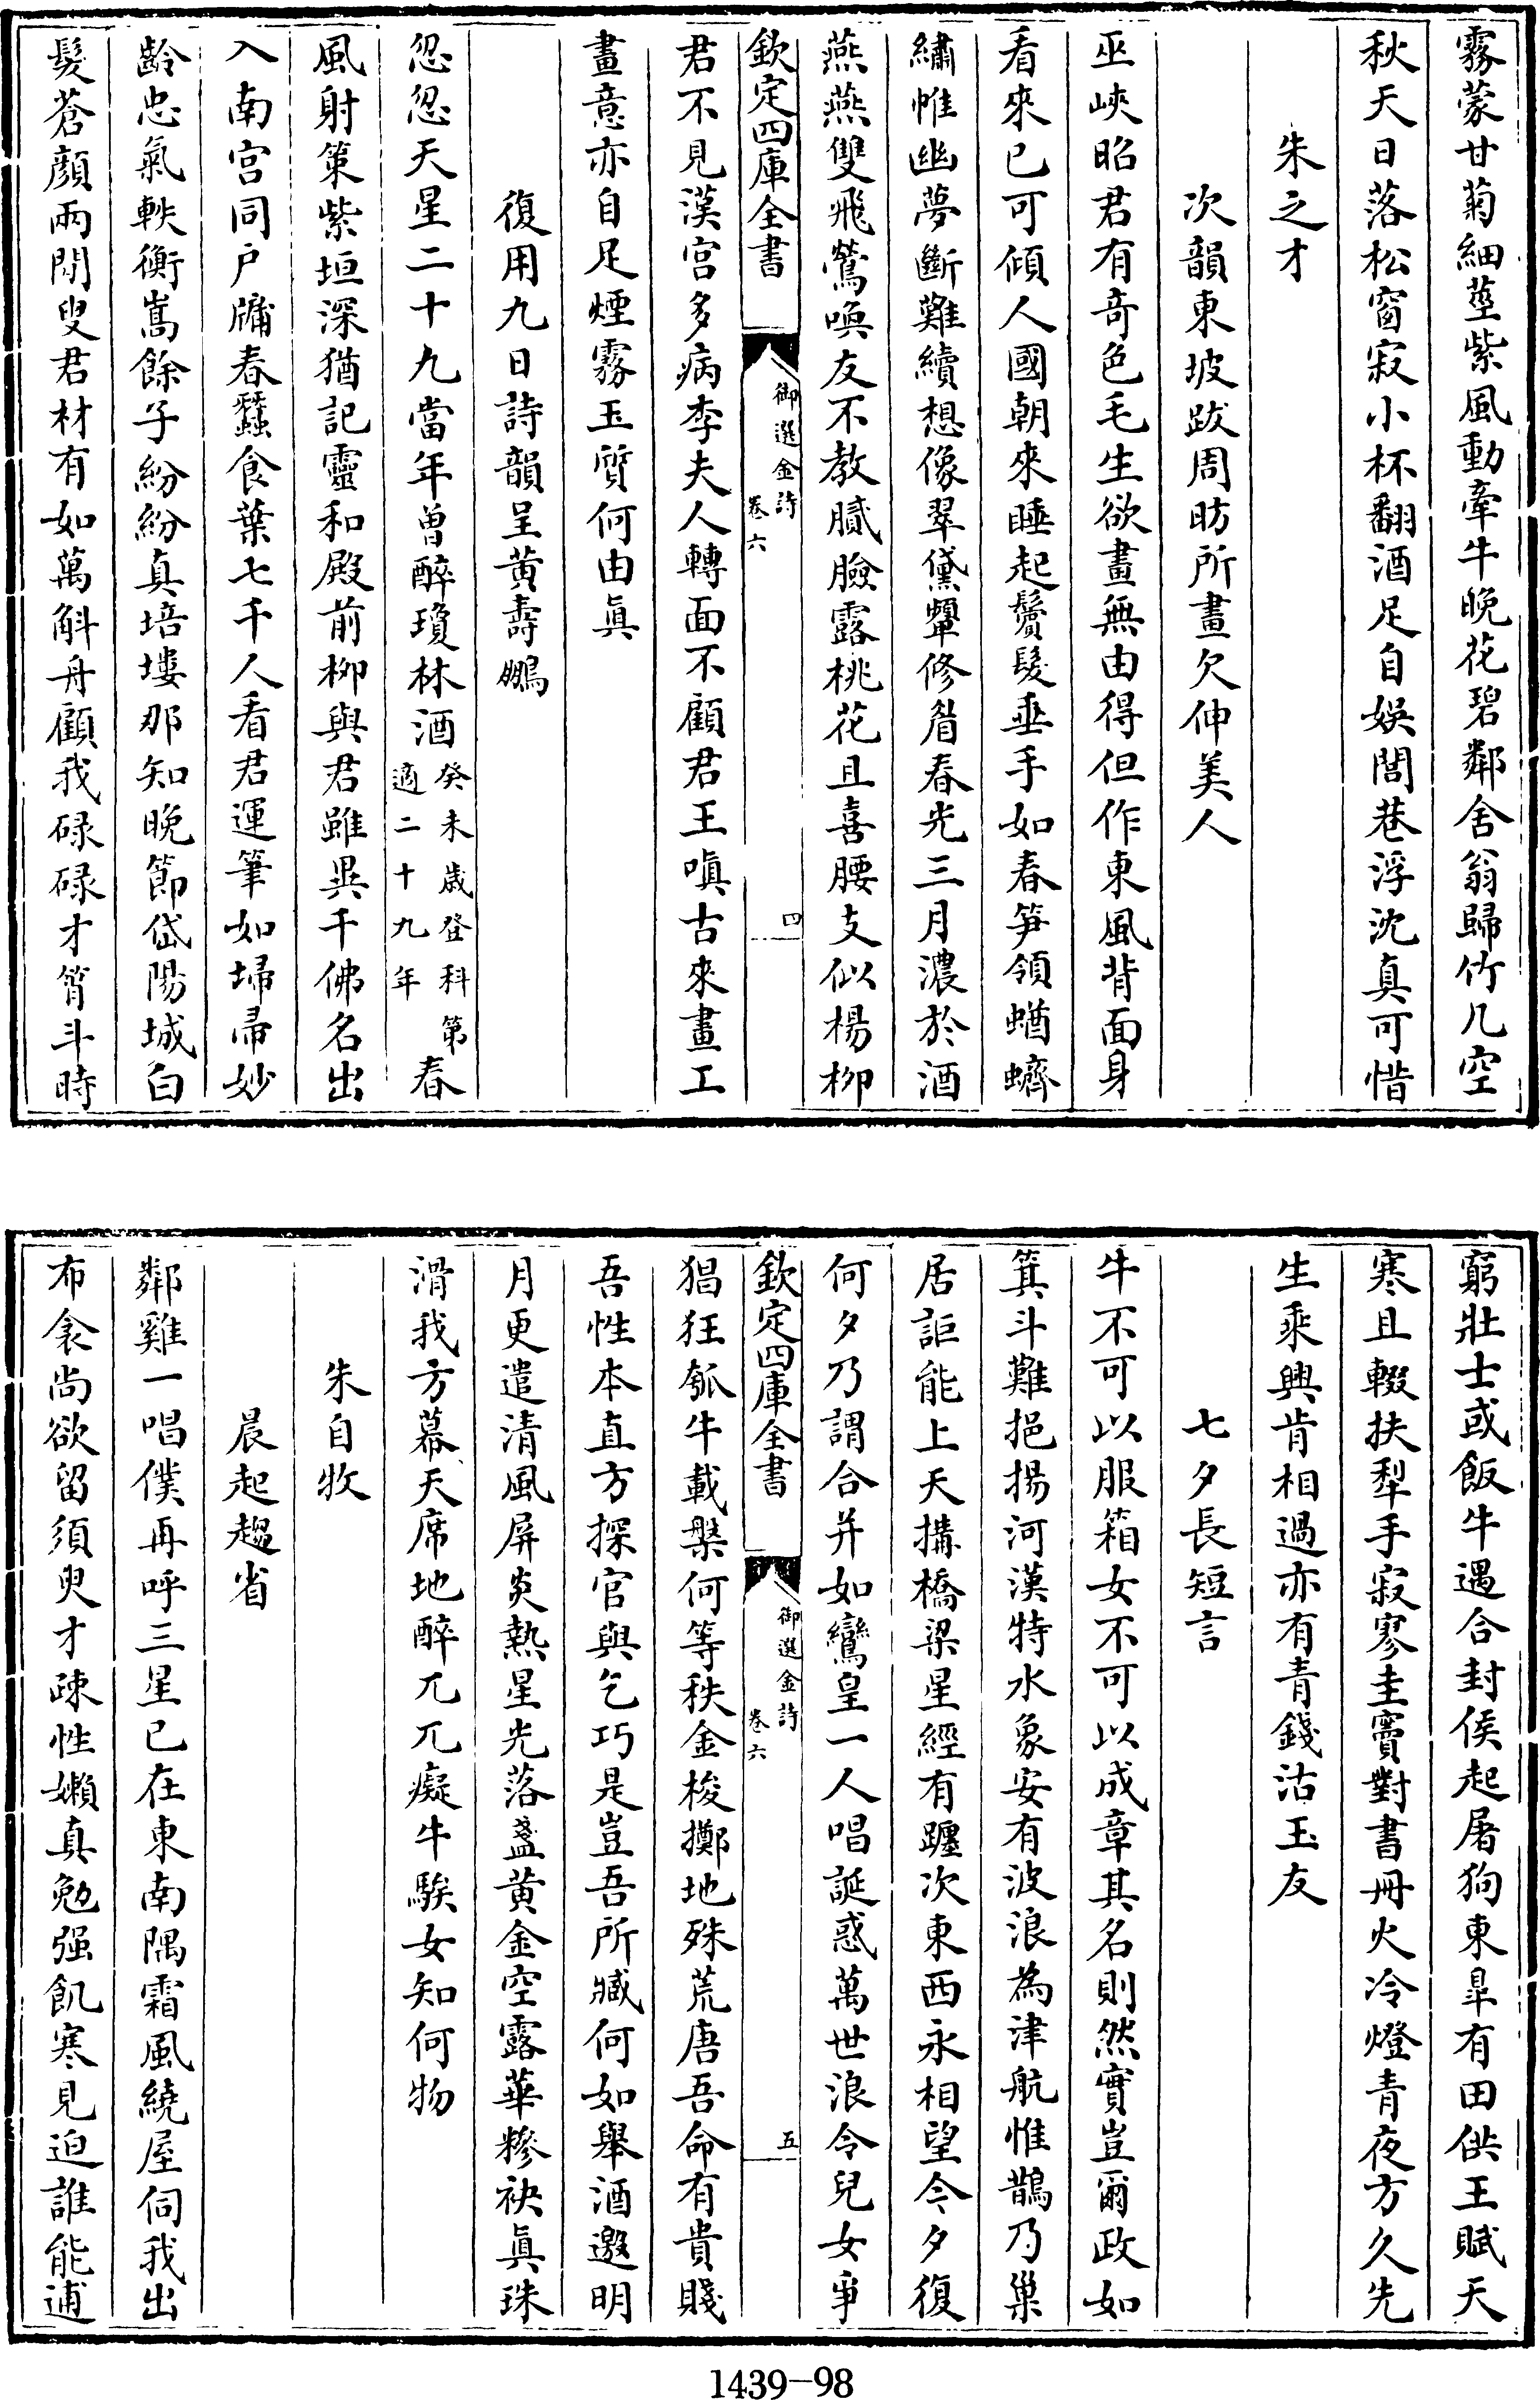 霧蒙甘菊細莖紫風動牽牛晚花碧鄰舍翁歸竹几空
秋天日落松窗寂小杯翻酒足自娛閭巷浮沈真可惜
朱之才
次韻東坡跋周昉所畫欠伸美人
巫峽昭君有奇色毛生欲畫無由得但作東風背面身
看來已可傾人國朝來睡起鬢髮垂手如春笋領蝤蠐
繡帷幽夢斷難續想像翠黛顰修眉春光三月濃於酒
燕燕雙飛鶯喚友不教膩臉露桃花且喜腰支似楊柳
欽定四庫全書
御選金詩
卷六
四
君不見漢宮多病李夫人轉面不顧君王嗔古來畫工
畫意亦自足煙霧玉質何由眞
復用九日詩韻呈黃壽鵬
忽忽天星二十九當年曾醉瓊林酒癸未歲登科第適二十九年春
風射策紫垣深猶記靈和殿前柳與君雖異千佛名出
入南宮同戶牖春蠶食葉七千人看君運筆如埽帚妙
齡忠氣軼衡嵩餘子紛紛真培塿那知晚節岱陽城白
髮蒼顏兩閒叟君材有如萬斛舟顧我碌碌才筲斗時
窮壯士或飯牛遇合封侯起屠狗東臯有田供王賦天
寒且輟扶犁手寂寥圭竇對書冊火冷燈青夜方久先
生乘興肯相過亦有青錢沽玉友
七夕長短言
牛不可以服箱女不可以成章其名則然實豈爾政如
箕斗難挹揚河漢特水象安有波浪為津航惟鵲乃巢
居詎能上天搆橋梁星經有躔次東西永相望今夕復
何夕乃謂合并如鸞皇一人唱誕惑萬世浪令兒女爭
欽定四庫全書
御選金詩
卷六
五
猖狂瓠牛載槃何等秩金梭擲地殊荒唐吾命有貴賤
吾性本直方探官與乞巧是豈吾所臧何如舉酒邀明
月更遣清風屏炎熱星光落盞黃金空露華糝袂眞珠
滑我方幕天席地醉兀兀癡牛騃女知何物
朱自牧
晨起趨省
鄰雞一唱僕再呼三星已在東南隅霜風繞屋伺我出
布衾尚欲留須臾才疎性嬾真勉强飢寒見迫誰能逋
1439-98